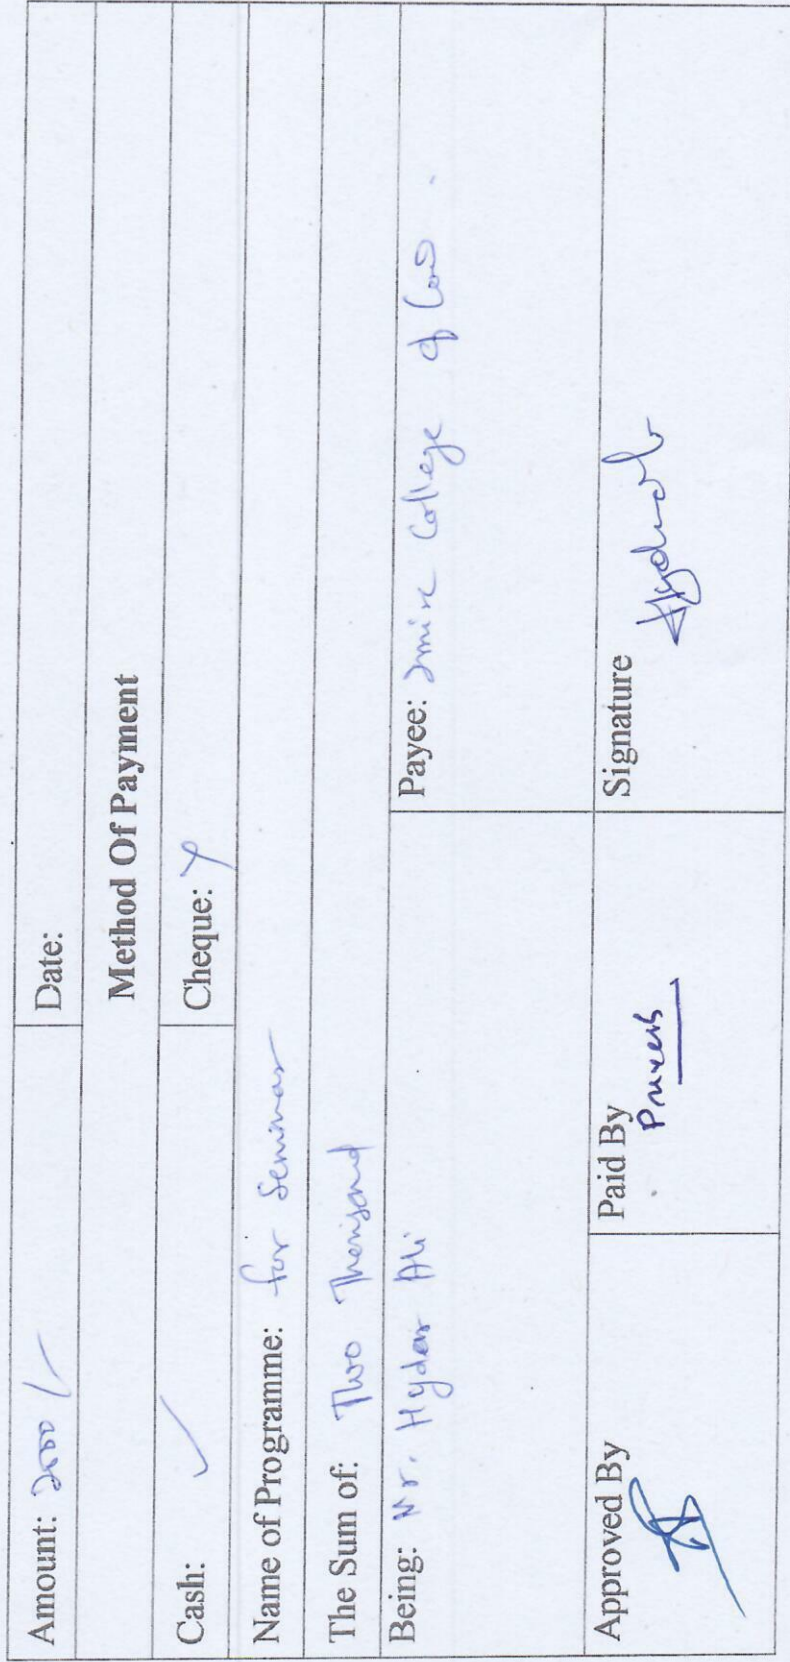 Amount: 2000/- Date:
Method Of Payment
Cash: ✓ Cheque:
Name of Programme: for Seminar
The Sum of: Two Thousand
Being: Mr. Hyder Ali Payee: College of Law.
Approved By Paid By Signature